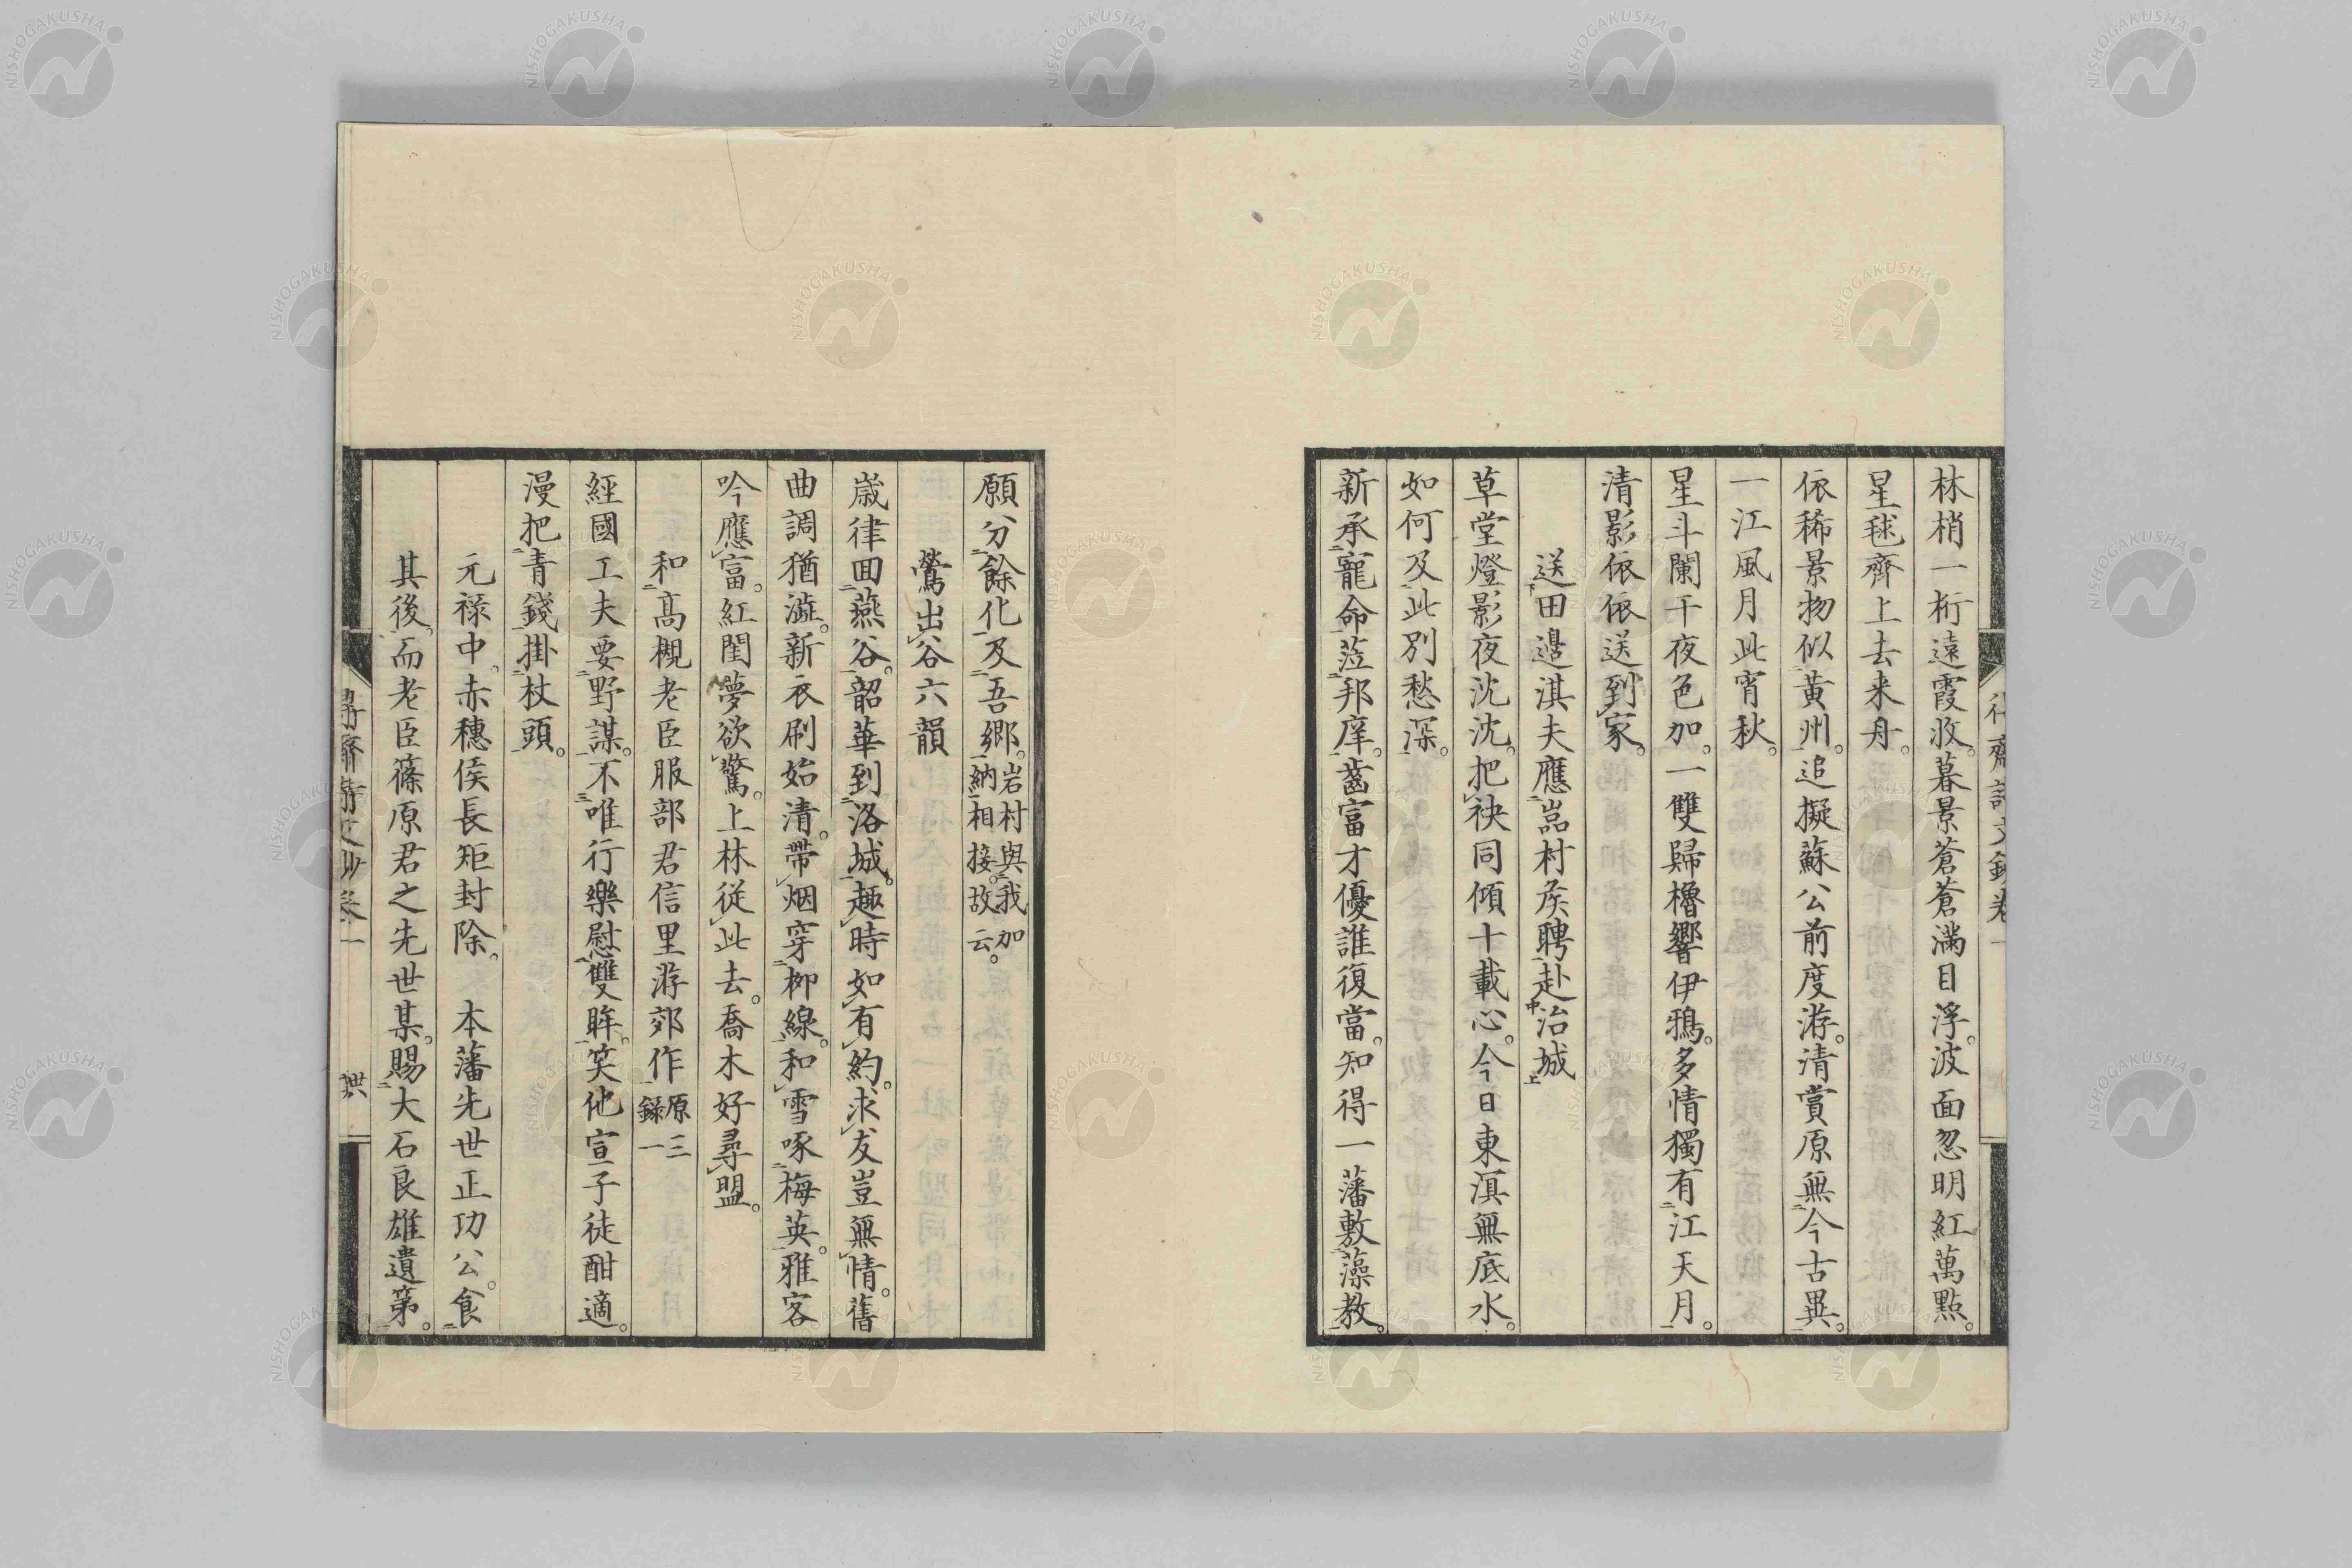 林梢一桁遠霞收。暮景蒼蒼滿目浮。波面忽明紅萬點。
星毬齊上去来舟。
依稀景物似黃州。追擬蘇公前度游。清賞原無今古異。
一江風月此宵秋。
星斗闌干夜色加。一雙歸櫓響伊鴉。多情獨有江天月。
清影依依送到家。
送田邉淇夫應嵓村矦聘赴治城
草堂燈影夜沈沈。把袂同傾十載心。今日東溟無底水。
如何及此別愁深。
新承寵命蒞邦庠。齒富才優誰復當。知得一藩敷藻教。
願分餘化及吾鄉。岩村與我加納相接。故云。
鶯出谷六韻
歳律囬燕谷。韶華到洛城。趣時如有約。求友豈無情。舊
曲調猶澁。新衣刷始清。帶烟穿栁線。和雪啄梅英。雅客
吟應富。紅閨夢欲驚。上林從此去。喬木好尋盟。
和髙槻老臣服部君信里游郊作原三錄一
經國工夫要野謀。不唯行樂慰雙眸。笑他宣子徒酣適。
漫把青錢掛杖頭。
元禄中。赤穗侯長矩封除。本藩先世正功公。食
其後。而老臣篠原君之先世某。賜大石良雄遺第。